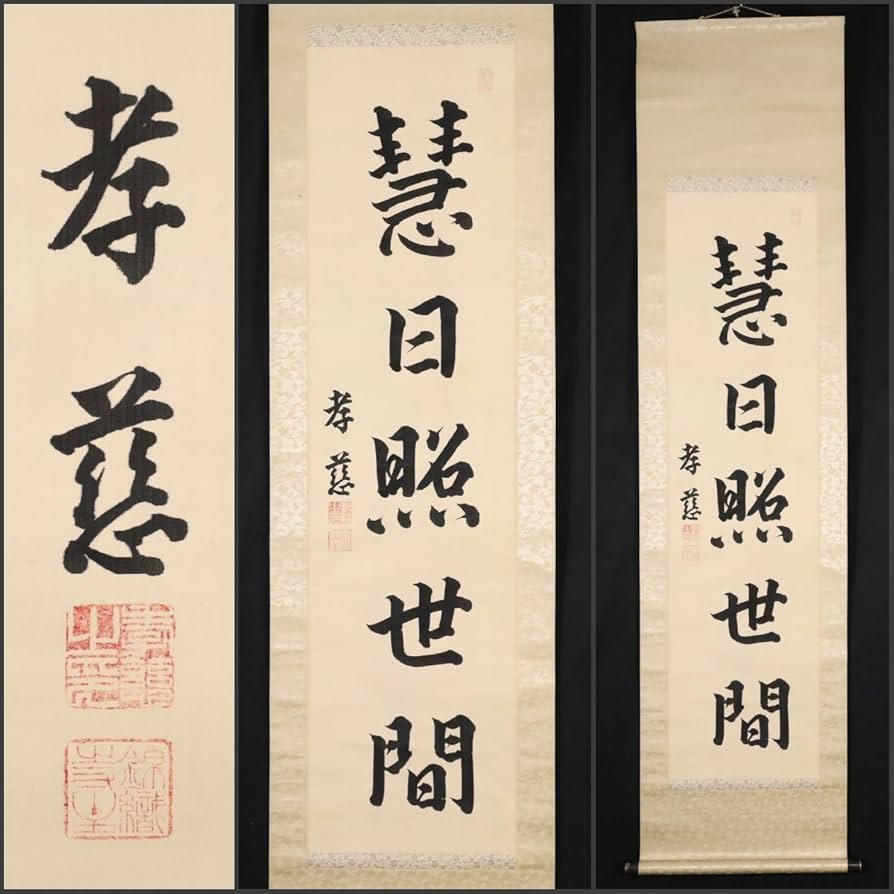 孝慈
慧日照世間
孝慈
慧日照世間
孝慈